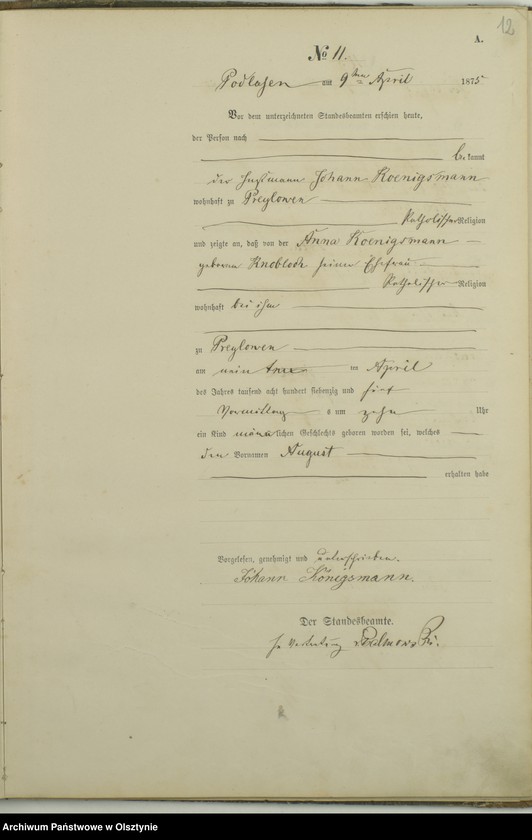 12
A.
No 11.
Podlasen am 9ten April 1875
Vor dem unterzeichneten Standesbeamten erschien heute,
der Person nach
bekannt
der Johann Koenigsmann
wohnhaft zu Preylowen
Katholischer Religion
und zeigte an, daß von der Anna Koenigsmann
geborene Knobloch seiner Ehefrau
Katholischer Religion
wohnhaft bei ihm
zu Preylowen
am ten April
des Jahres tausend acht hundert siebenzig und fünf
Vormittag s um zehn Uhr
ein Kind männlichen Geschlechts geboren worden sei, welches
den Vornamen August
erhalten habe
Vorgelesen, genehmigt und unterschrieben.
Johann Königsmann.
Der Standesbeamte.
In Vertretung
Archiwum Państwowe w Olsztynie